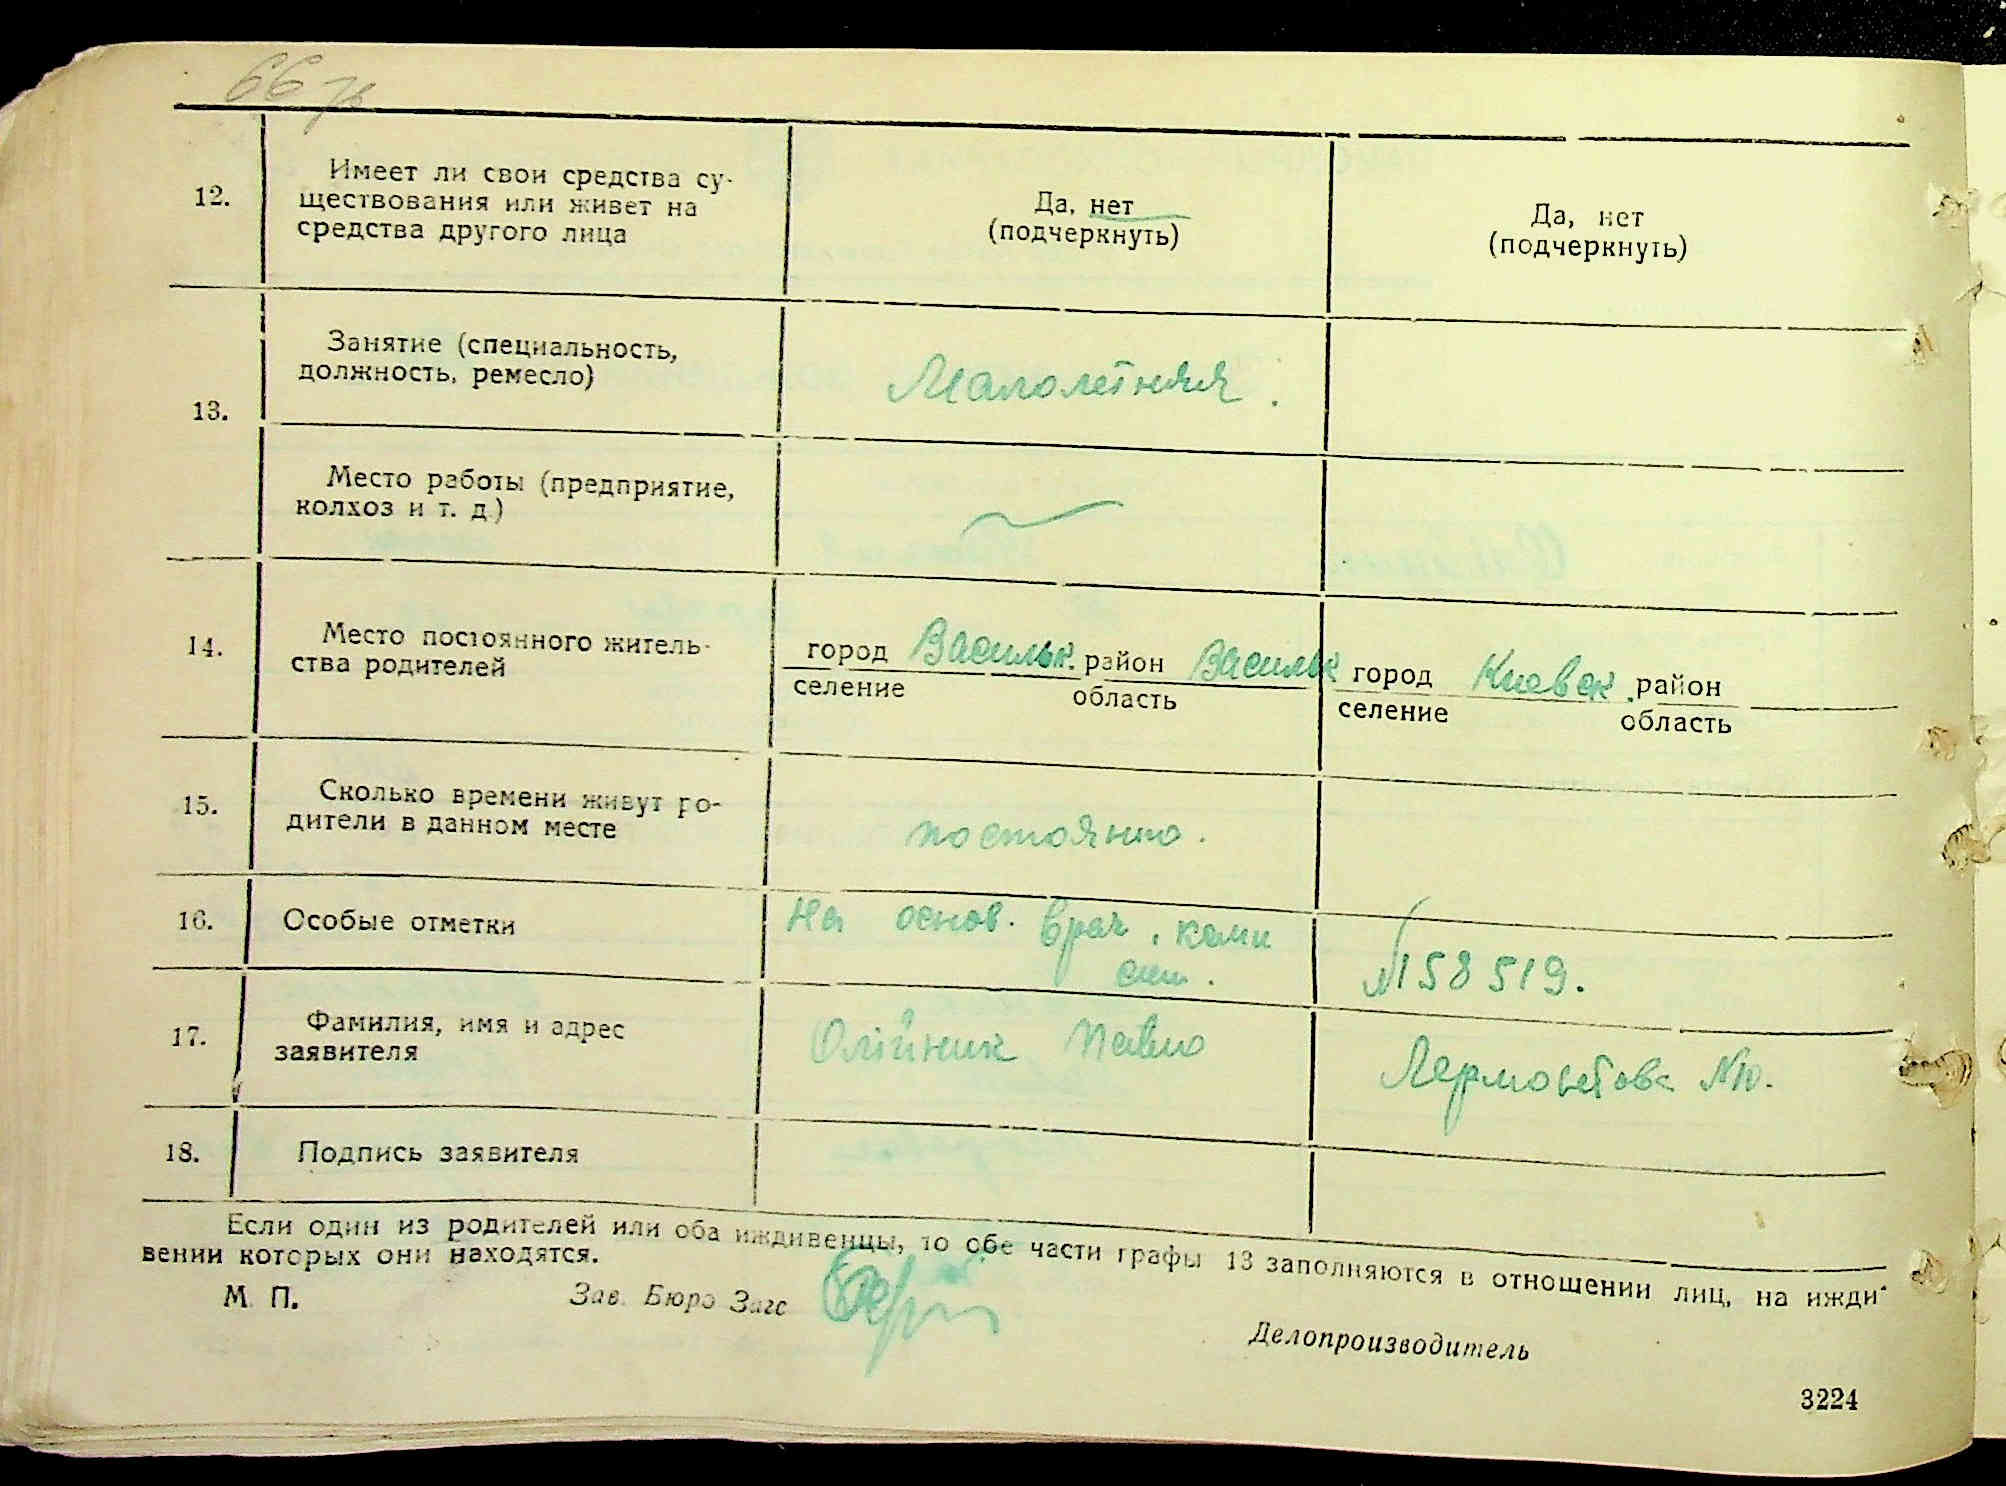 66
12.
Имеет ли свои средства су-
ществования или живет на
средства другого лица
Да, нет
(подчеркнуть)
Да, нет
(подчеркнуть)
13.
Занятие (специальность,
должность, ремесло)
Малолетняя.
Место работы (предприятие,
колхоз и т. д.)
14.
Место постоянного житель-
ства родителей
город Васильк. район Васильк
селение область
город Киевск. район
селение область
15.
Сколько времени живут ро-
дители в данном месте
постоянно.
16.
Особые отметки
На основ. врач. коми
сии.
№158519.
17.
Фамилия, имя и адрес
заявителя
Олійник Павло
Лермонтова №10.
18.
Подпись заявителя
Если один из родителей или оба иждивенцы, то обе части графы 13 заполняются в отношении лиц, на ижди-
вении которых они находятся.
М. П.
Зав. Бюро Загс
Делопроизводитель
3224